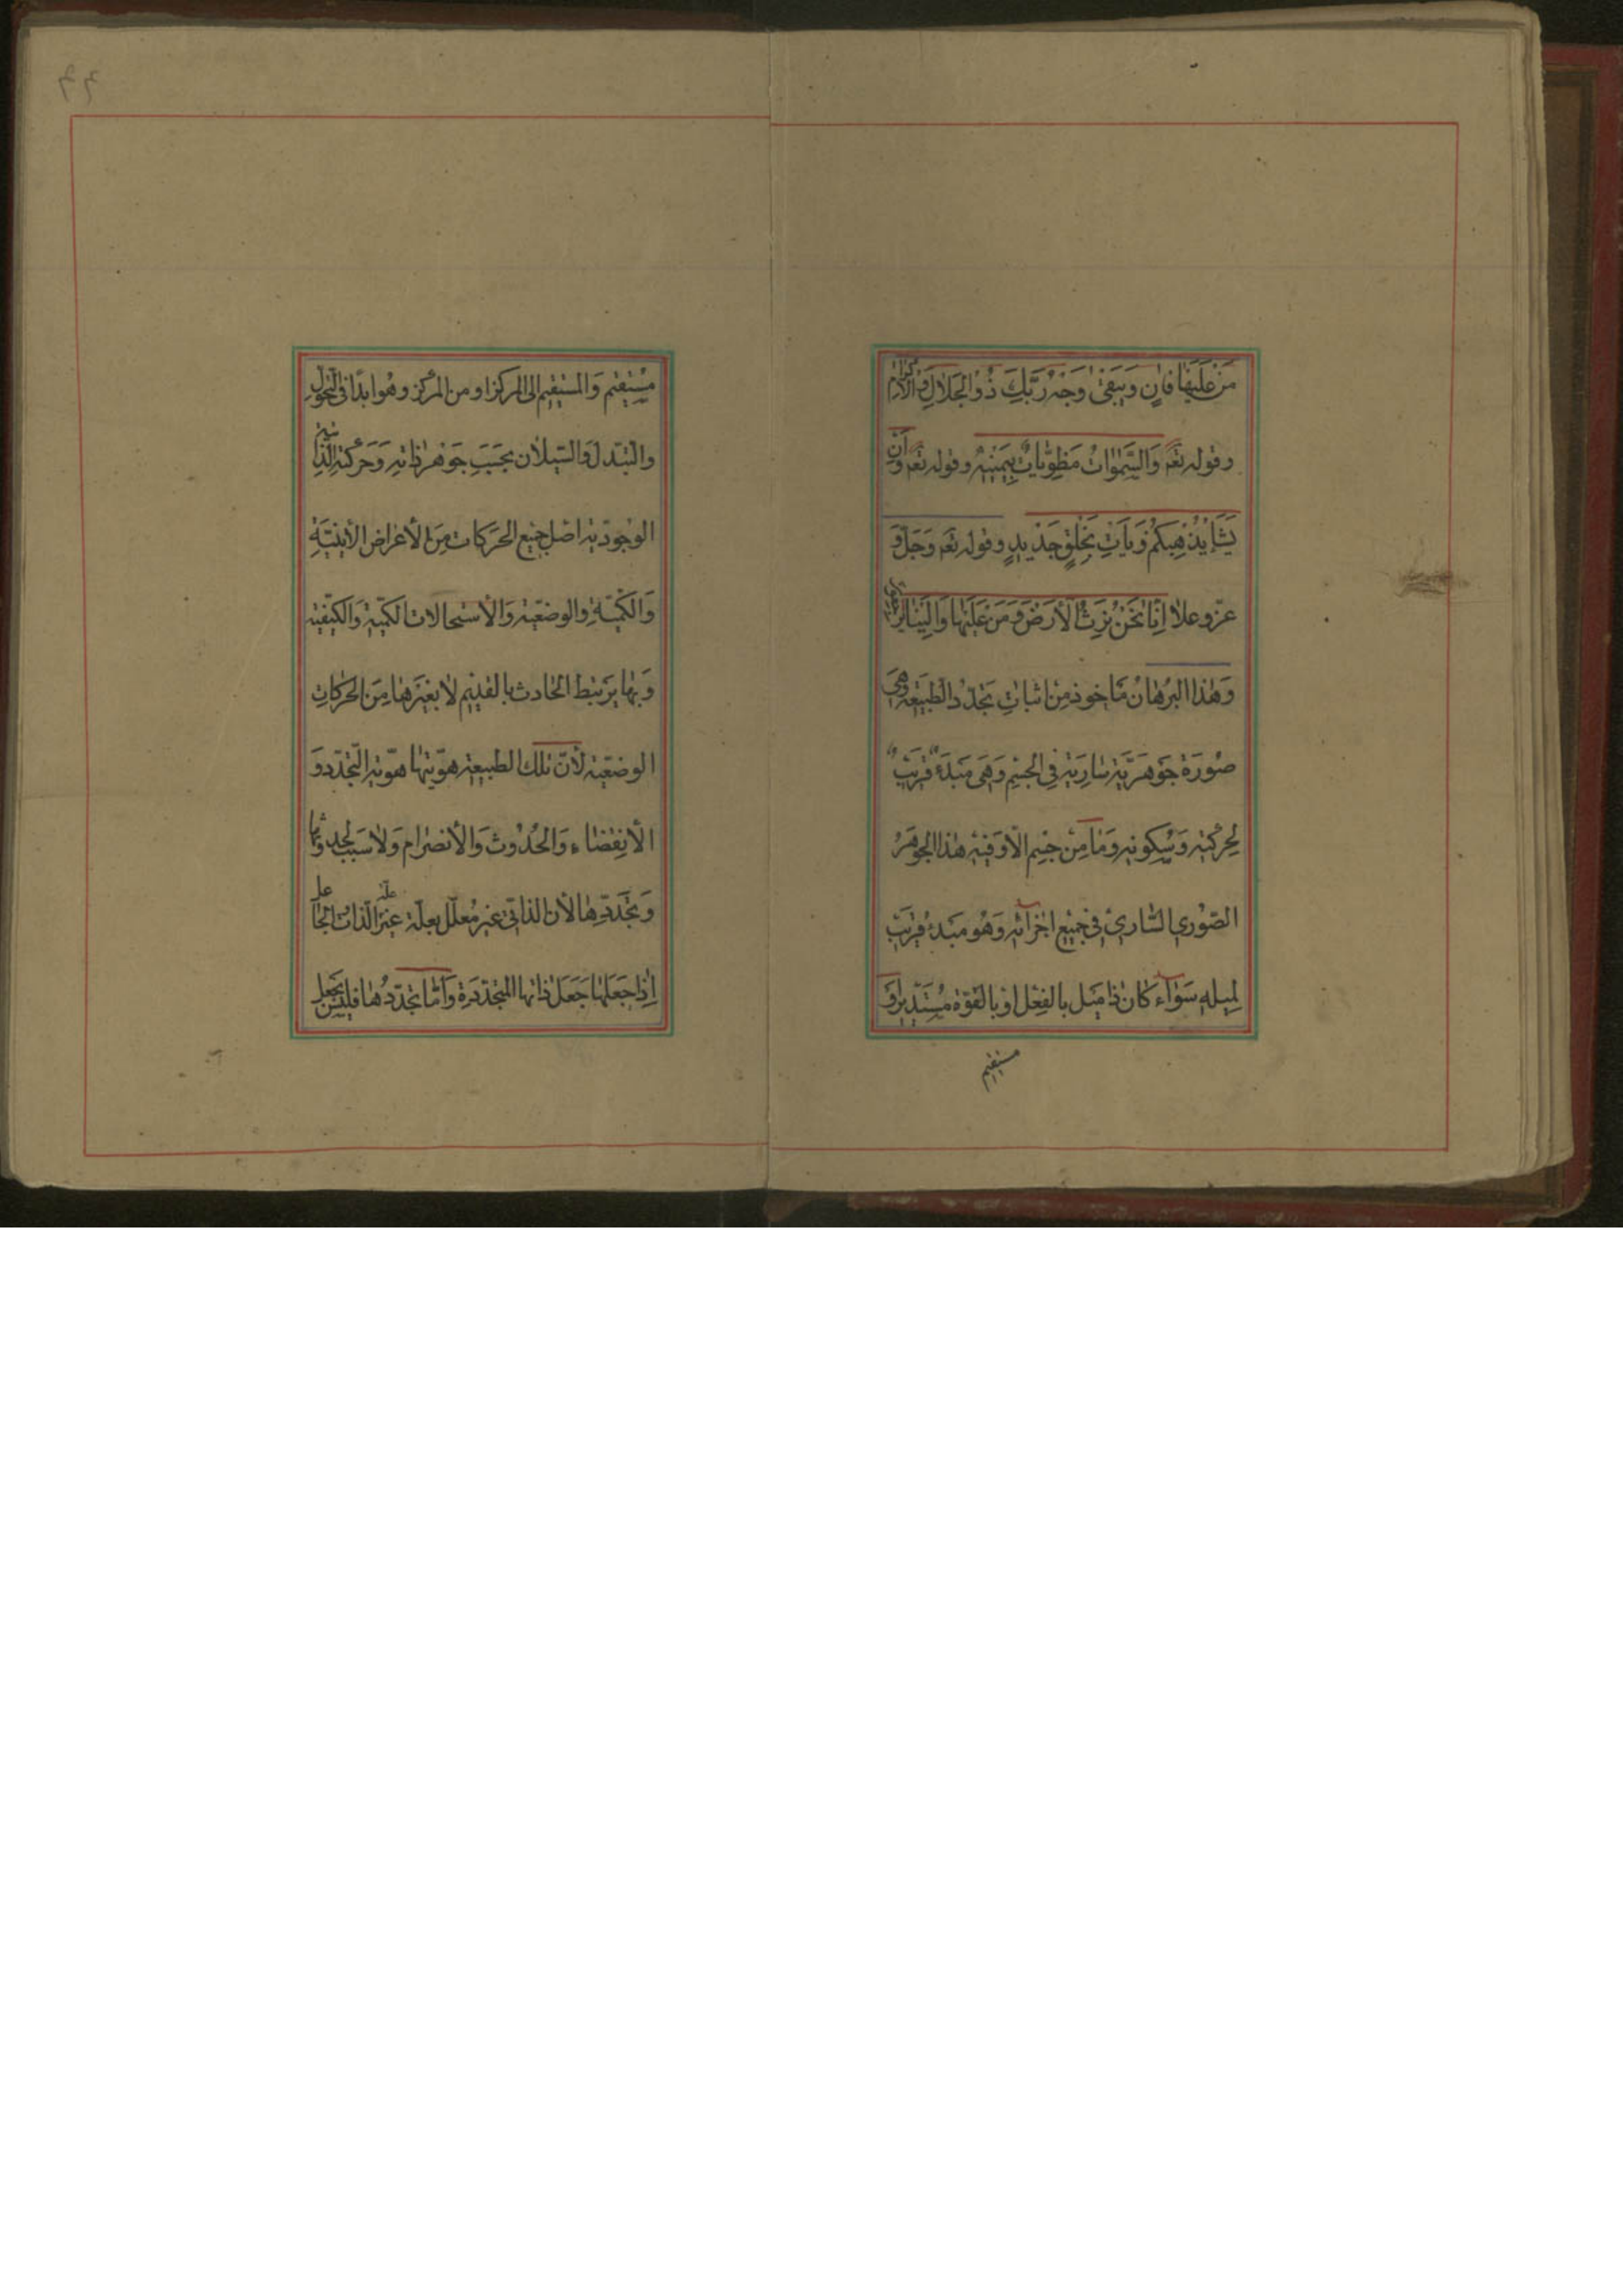 مَنْ عَلَيْهَا فَانٍ وَيَبْقَىٰ وَجْهُ رَبِّكَ ذُوْ الْجَلَالِ وَالْاِكْرَام
وقوله تعَ وَالسَّمٰوَاتُ مَطْوِيَّاتٌ بِيَمِيْنِهِ وقوله تعَ وَاِنْ
يَشَأْ يُذْهِبْكُمْ وَيَأْتِ بِخَلْقٍ جَدِيدٍ وقوله تعَ وَجَلَّ وَ
عزّ وعلا اِنَّا نَحْنُ نَرِثُ الْأَرْضَ وَمَنْ عَلَيْهَا وَاِلَيْنَا يرجعون
وَهٰذا البُرهَانُ مَاخوذ مِنْ اثبَاتِ تَجَدُّد الطَّبِيعَة وَهِيَ
صُورَة جَوهَرَيَّة سَارِيَة فِي الجِسْمِ وَهِيَ مَبْدَءٌ قَرِيْبٌ
لِحَرْكَتِه وَسُكونِه وَمَا مِنْ جِسْمٍ الّا وَفِيْهِ هٰذا الجَوهَرُ
الصّوُري السّارىْ فى جَميْع اجْزائِه وَهُو مَبْدءٌ قَرِيْبٌ
لِمَيلِه سَوآء كَان ذا مَيْل بالفِعْل اوْ بالقوّة مُسْتَدِيراً وَ
مستقيم
مُسْتِقيْم وَالمسْتقيْم الى المَركز او من المركز وهُو ابدًا فى التّحوّلِ
والتّبَدل وَالسّيلان بحَسَبِ جَوْهَر ذاتِه وَحَركَته الذّاتيّة
الوُجُوديّة اصْل جَميْع الحَركات مِنَ الأعْراض الأينيّةِ
وَالكَميّةِ والوضعيّة وَالأسْتحالات الكمّيّة وَالكيفيّة
وَبهَا يَرتبط الحَادث بالقديْم لا بغَيْرهَا مِنَ الحَركاتِ
الوضعيّة لأنّ تلك الطبيعة هوّيتهَا هوّية التّجدّد وَ
الأنِقضاء وَالحُدُوث وَالأنصرام وَلا سَبَب لحدوثها
وَتجَدّدِهَا لأن الذّاتىّ غَيْر مُعَلّل بعلّة غيْر علّة الذّات والجاعل
اِذا جَعَلهَا جَعَل ذاتها المتجدّدَة وَأمّا تجَدّدُهَا فليْسَ بجَعْل